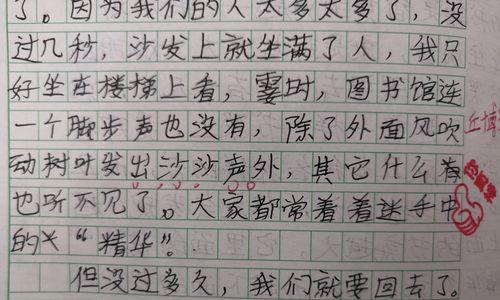 了。因为我们的人太多太多了，没
过几秒，沙发上就坐满了人，我只
好坐在楼梯上看，霎时，图书馆连
一个脚步声也没有，除了外面风吹
动树叶发出沙沙声外，其它什么声
也听不见了。大家都常着着迷手中
的“精华”。
但没过多久，我们就要回去了。
丘博